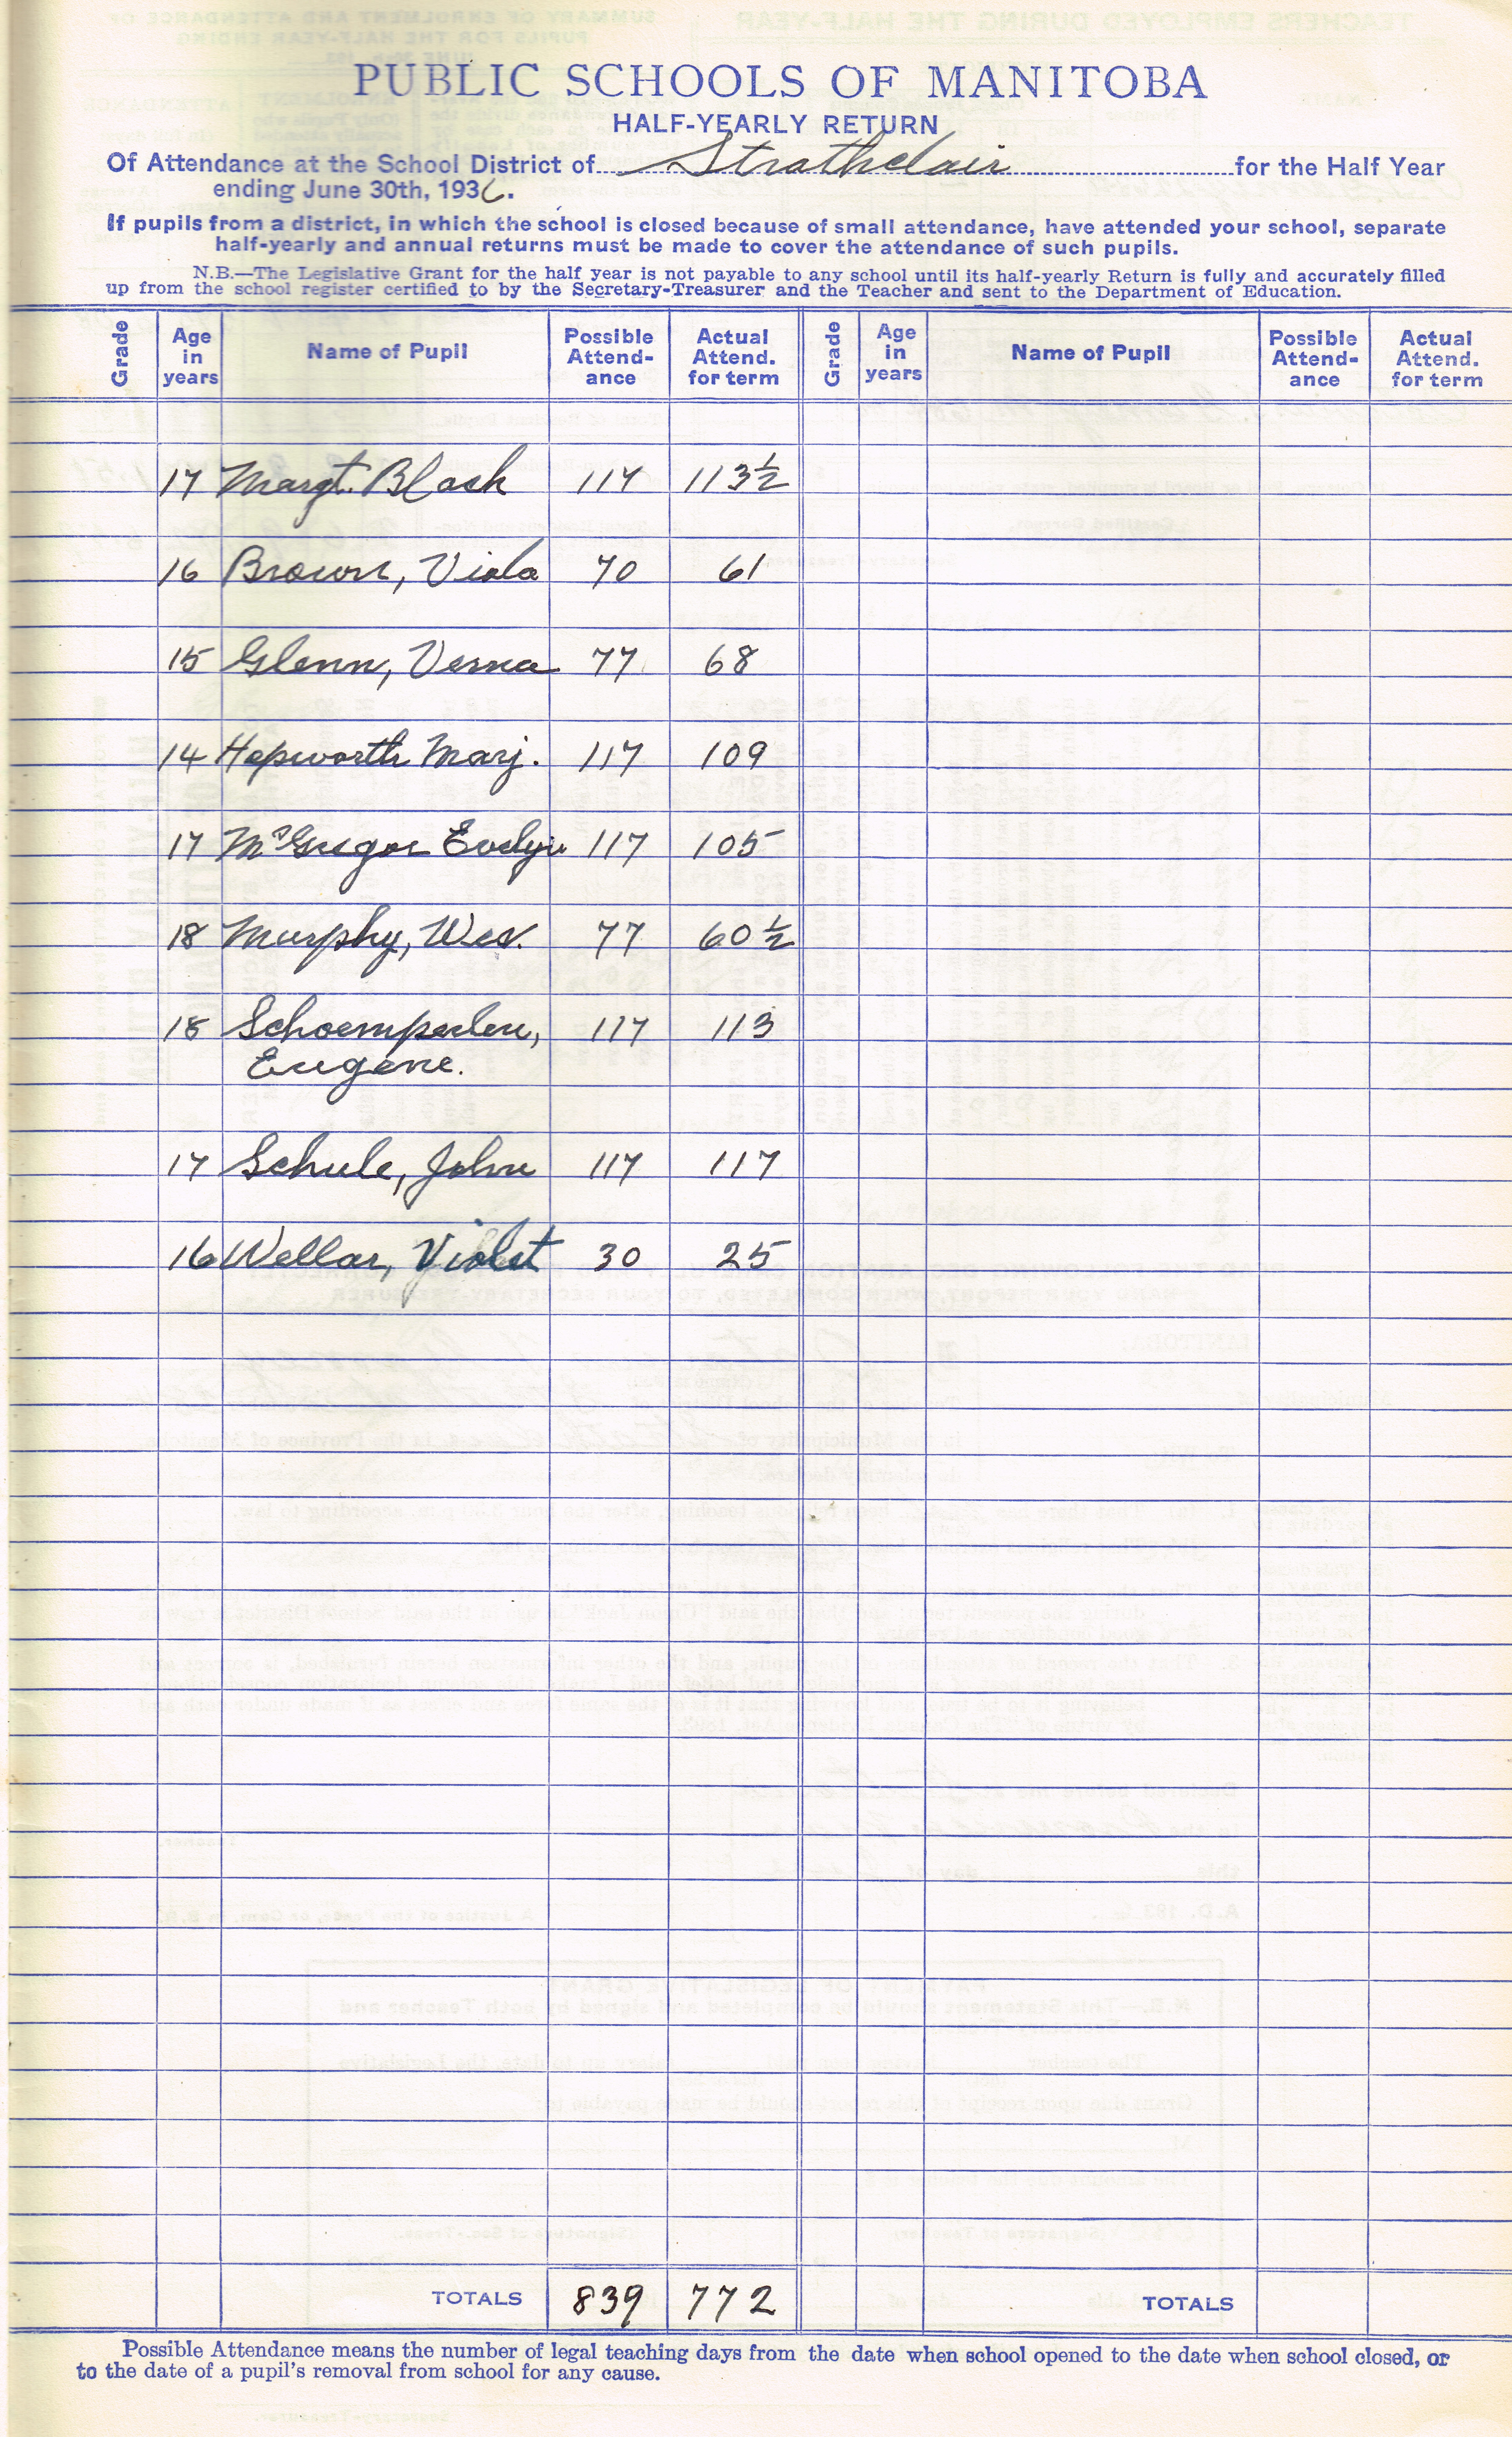 PUBLIC SCHOOLS OF MANITOBA
HALF-YEARLY RETURN
Of Attendance at the School District of Strathclair for the Half Year
ending June 30th, 1936.
If pupils from a district, in which the school is closed because of small attendance, have attended your school, separate
half-yearly and annual returns must be made to cover the attendance of such pupils.
N.B.—The Legislative Grant for the half year is not payable to any school until its half-yearly Return is fully and accurately filled
up from the school register certified to by the Secretary-Treasurer and the Teacher and sent to the Department of Education.
Grade Age in years Name of Pupil Possible Attend-ance Actual Attend. for term Grade Age in years Name of Pupil Possible Attend-ance Actual Attend. for term
17 Margt. Black 117 113½
16 Brown, Viola 70 61
15 Glenn, Verna 77 68
14 Hepworth Marj. 117 109
17 McGregor Evelyn 117 105
18 Murphy, Wes. 77 60½
18 Schoemperlen, 117 113
Eugene.
17 Schule, John 117 117
16 Wellar, Violet 30 25
TOTALS 839 772 TOTALS
Possible Attendance means the number of legal teaching days from the date when school opened to the date when school closed, or
to the date of a pupil's removal from school for any cause.